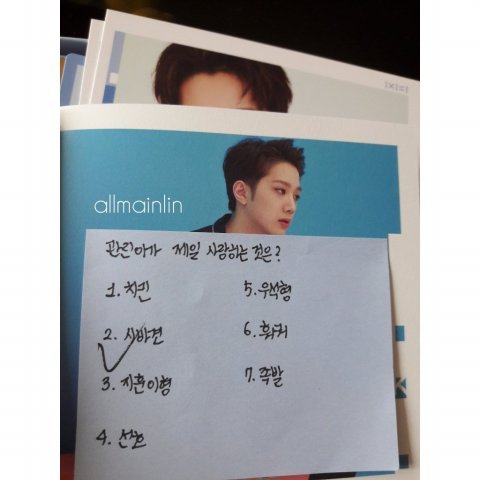 allmainlin
관린아가 제일 사랑하는 것은?
1. 치킨
2. 시바견
3. 지훈이형
4. 선호
5. 우석형
6. 휘커
7. 족발